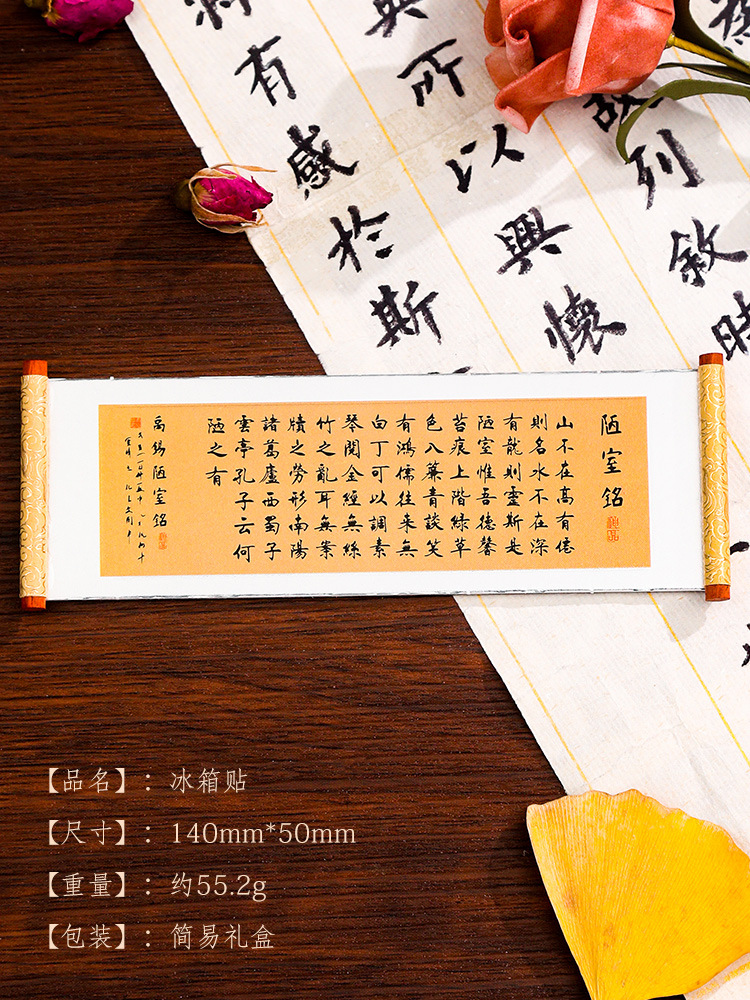 故列敘時
所以興懷
有感於斯
陋室銘
山不在高有僊
則名水不在深
有龍則靈斯是
陋室惟吾德馨
苔痕上階綠草
色入簾青談笑
有鴻儒往來無
白丁可以調素
琴閱金經無絲
竹之亂耳無案
牘之勞形南陽
諸葛廬西蜀子
雲亭孔子云何
陋之有
禹錫陋室銘
【品名】：冰箱贴
【尺寸】：140mm*50mm
【重量】：约55.2g
【包装】：简易礼盒